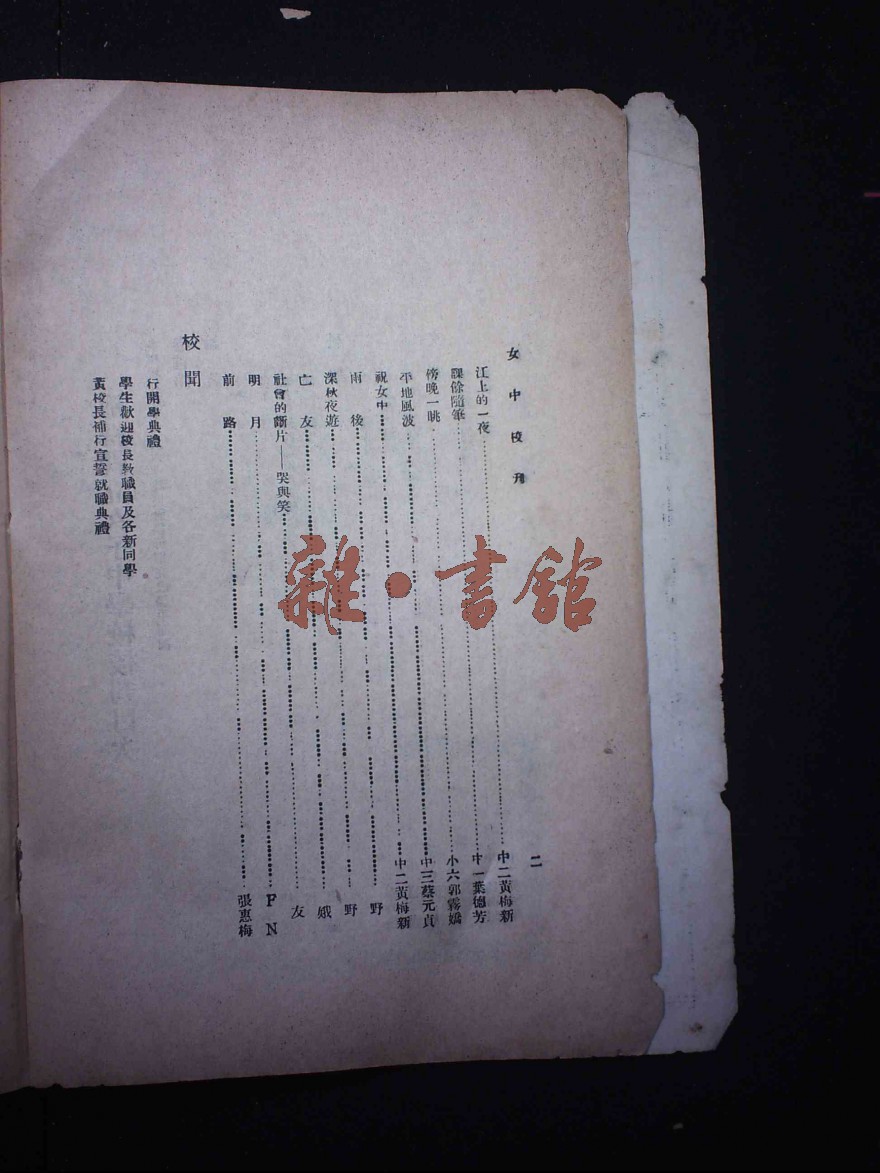 女中校刊 二
江上的一夜……中二黃梅新
課餘隨筆……中一葉德芳
傍晚一眺……小六郭霧嬌
平地風波……中三蔡元貞
祝女中……中二黃梅新
雨後……野
深秋夜遊……野
亡友……娥
社會的斷片——哭與笑……友
明月……FN
前路……張惠梅
校聞
行開學典禮
學生歡迎校長教職員及各新同學
黃校長補行宣誓就職典禮
雜·書館